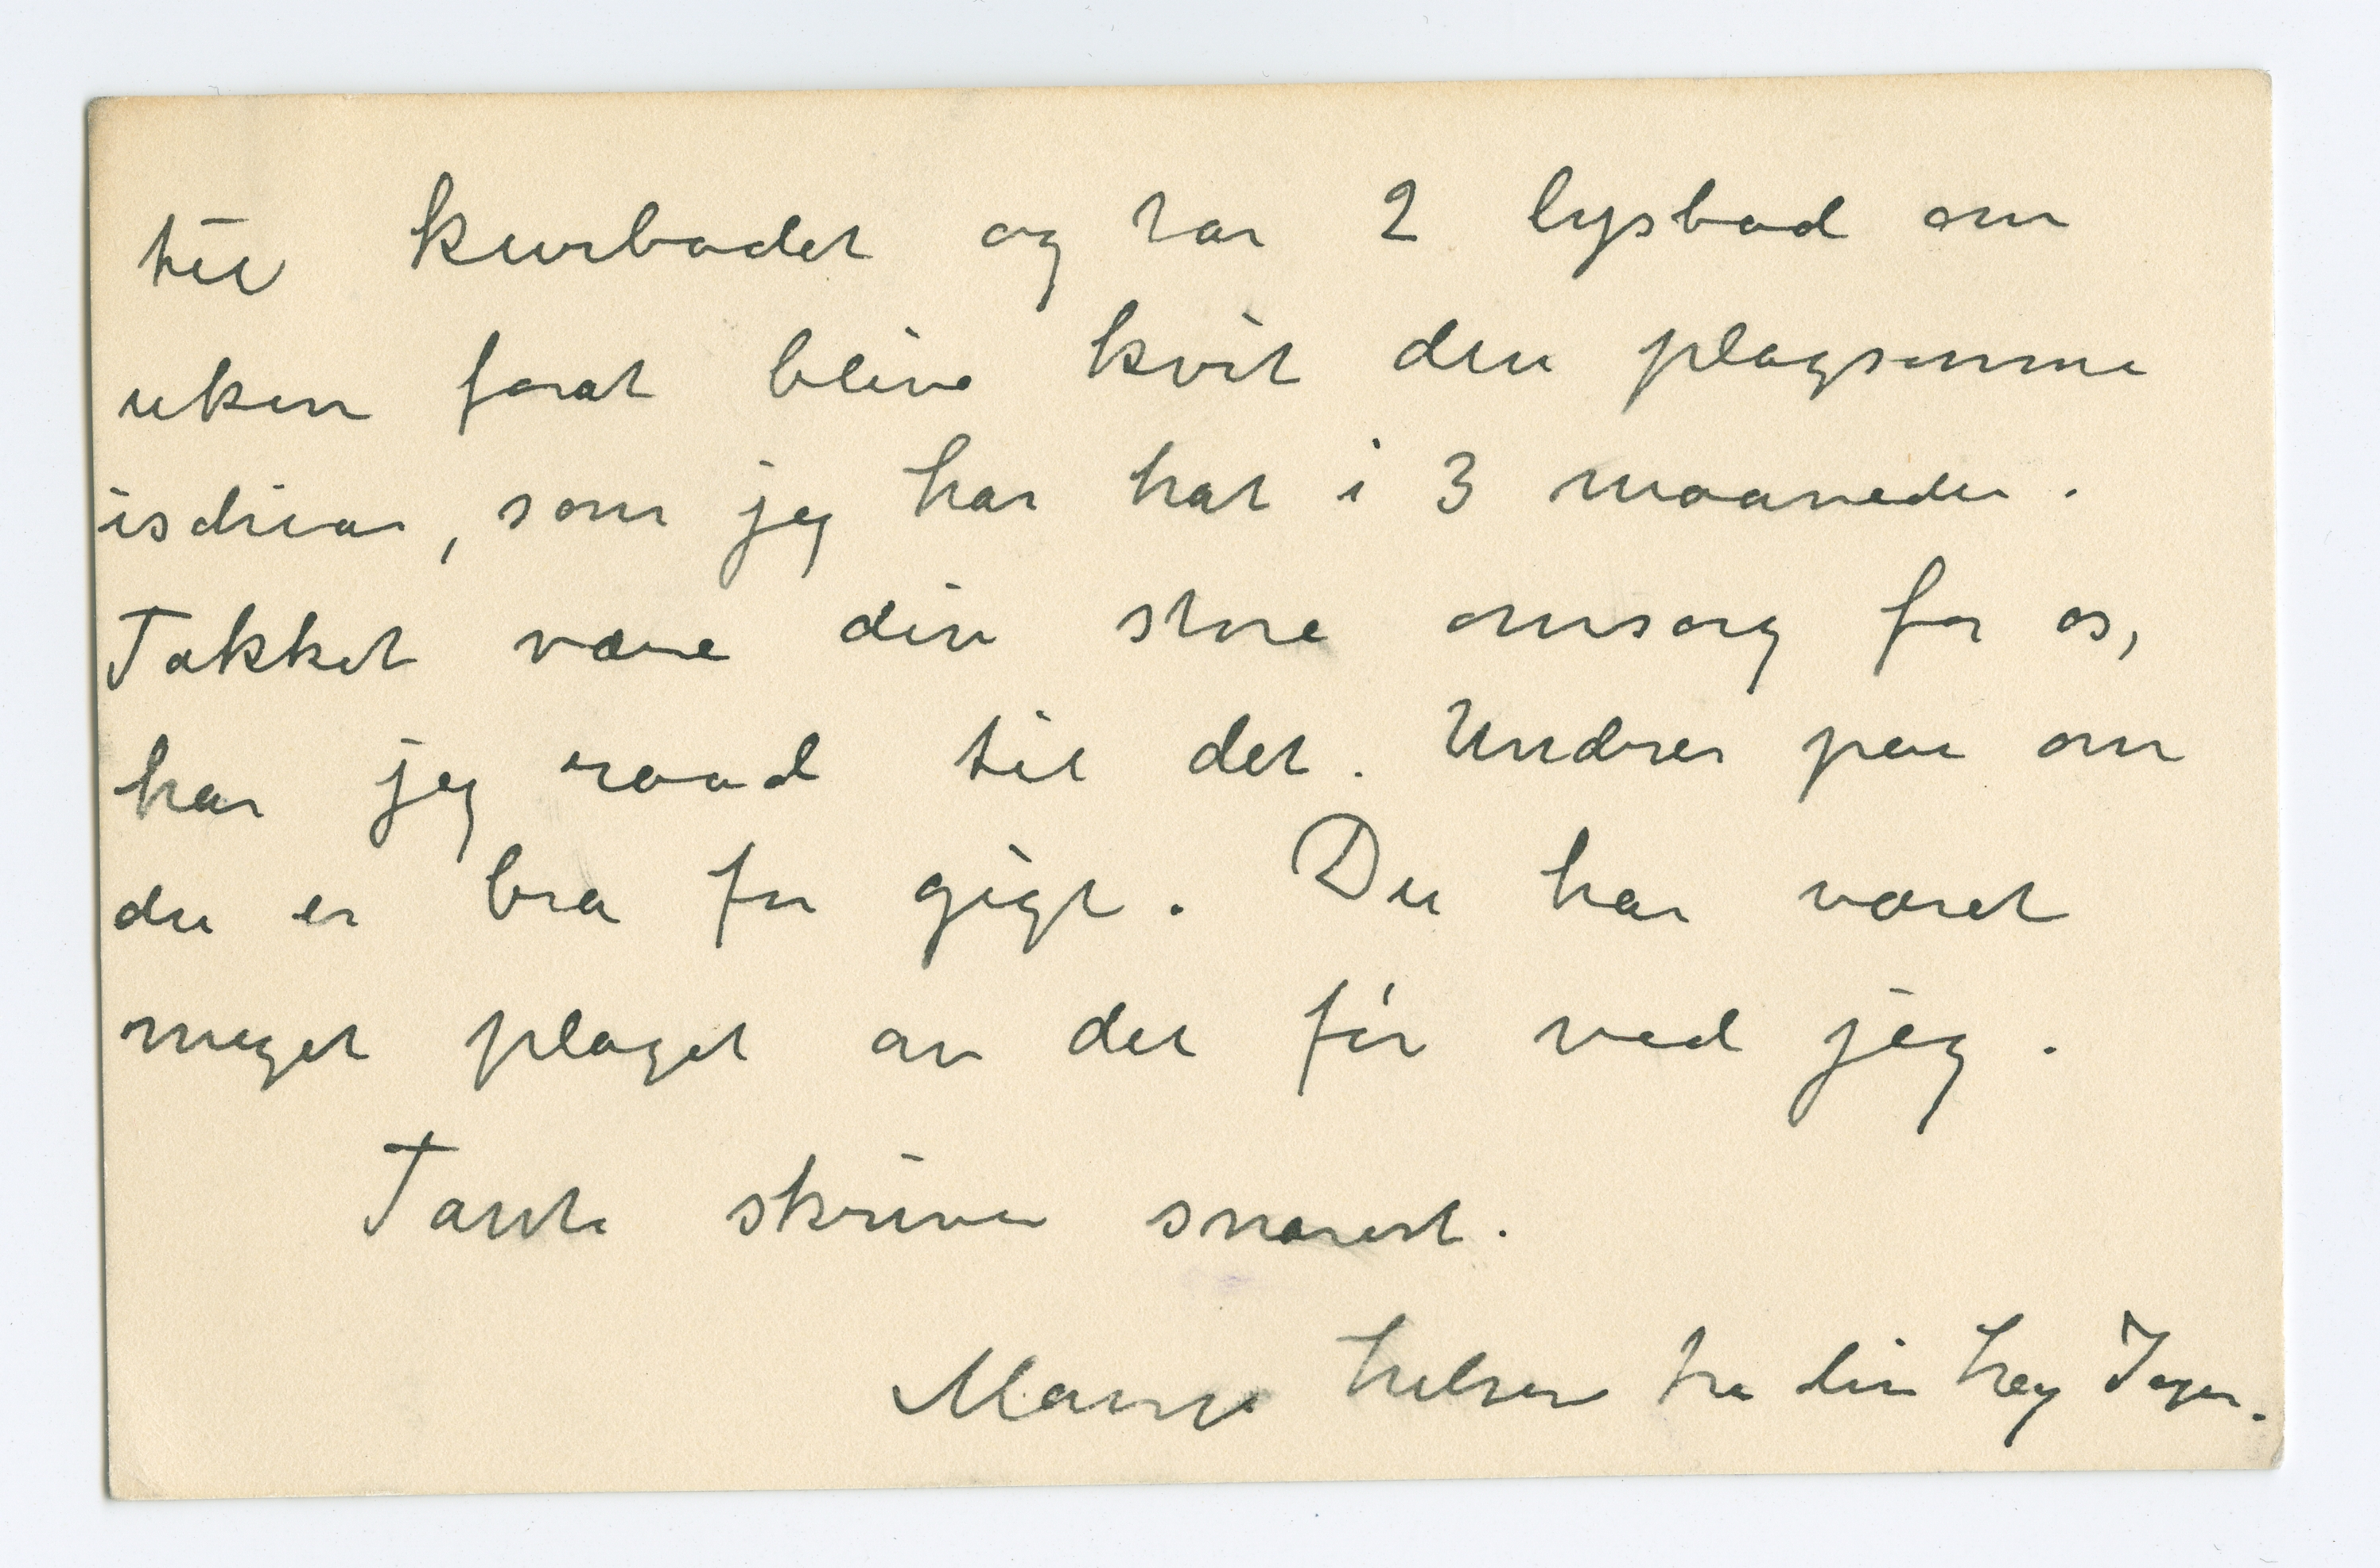 til kurbadet og tar 2 lysbad om
uken forat blive kvit den plagsomme
isdrias, som jeg har hat i 3 maaneder.
Takket være din store omsorg for os,
har jeg raad til det. Undrer paa om
du er bra for gigt. Du har været
meget plaget av det før ved jeg.
Tante skriver snarest.
Mange hilsener fra din heng Inger.